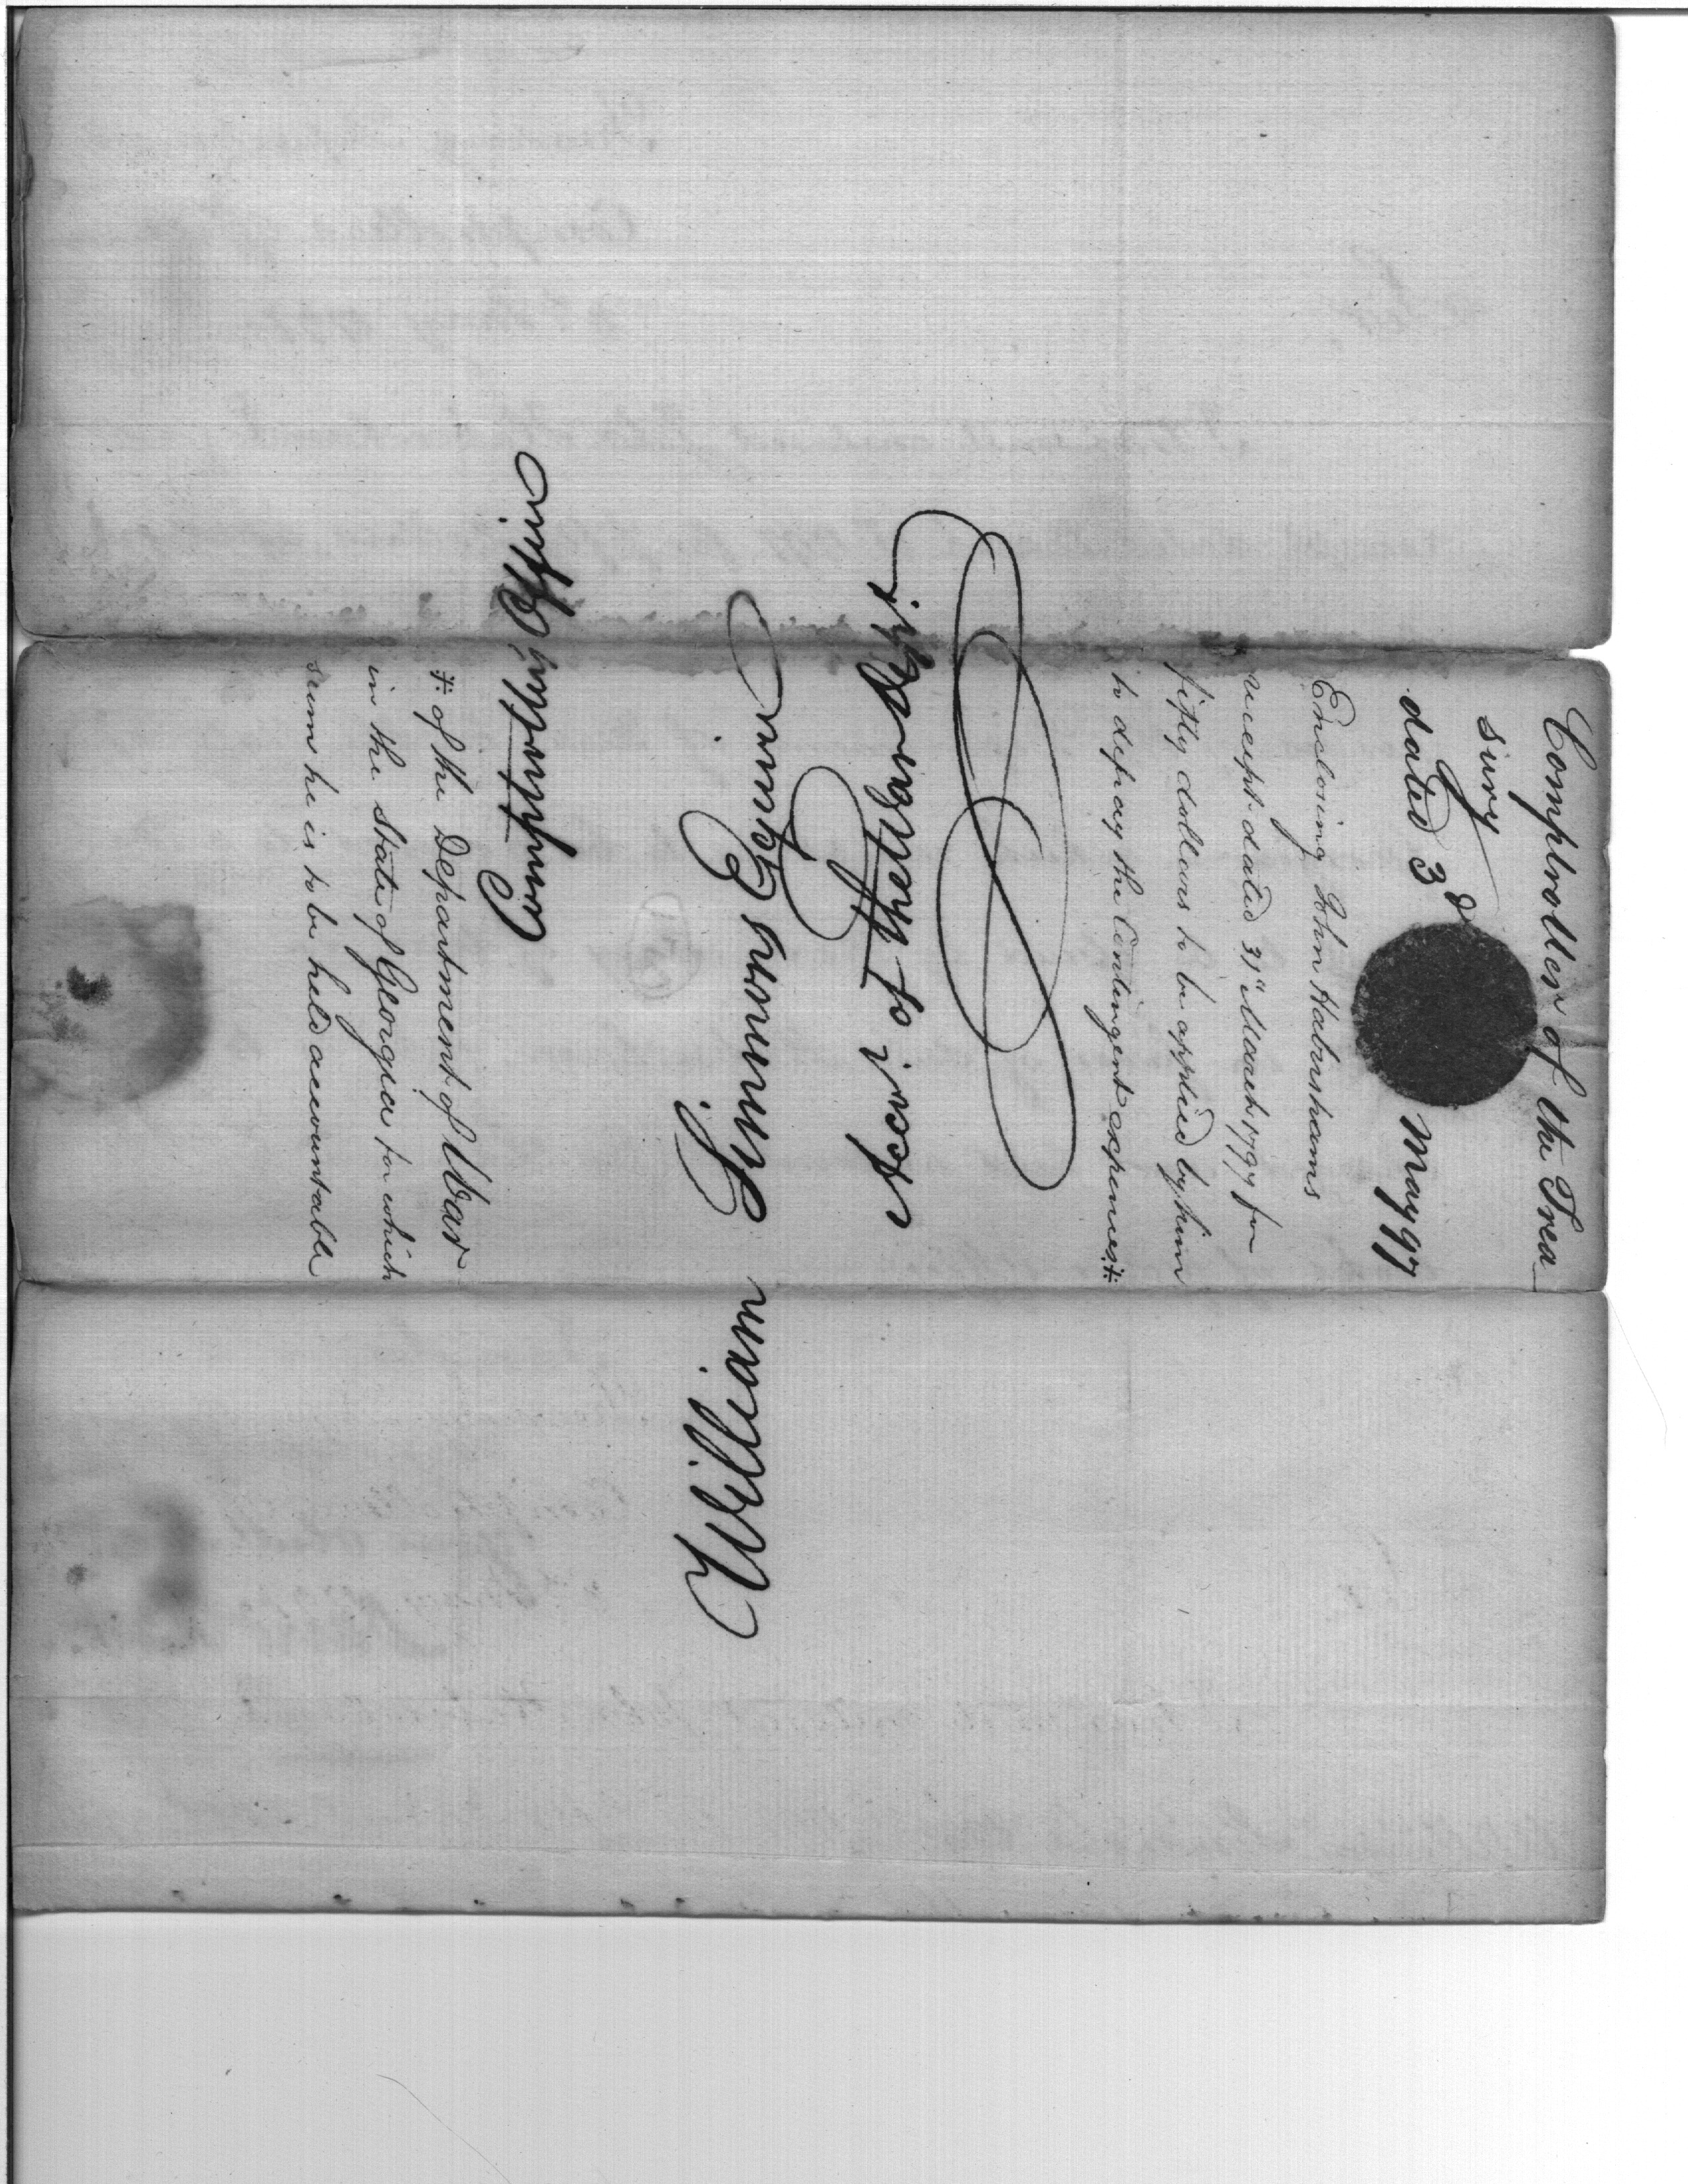 Comptroller of the Trea-
sury
dated 3d May 97
Enclosing John Habershams
receipt dated 31st March 1797 for
fifty dollars to be applied by him
to defray the Contingent expenses #
# of the Department of War
in the State of Georgia for which
sum he is to be held accountable
Comptrollers Office
William Simmons Esquire
Accot. of the War Dept.